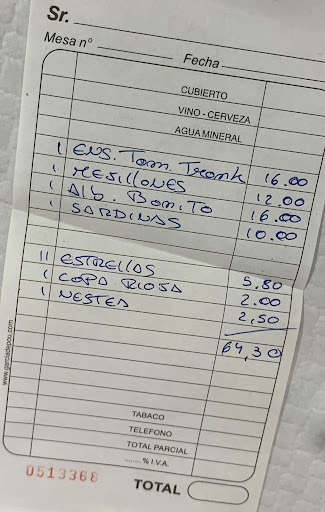 Sr.
Mesa nº Fecha
CUBIERTO
VINO - CERVEZA
AGUA MINERAL
1 ENS. Tom. Tronk 16.00
1 MEJILLONES 12.00
1 Alb. Bonito 16.00
1 SARDINAS 10.00
11 ESTRELLAS 5.80
1 COPA RIOJA 2.00
1 NESTEA 2,50
64,30
TABACO
TELEFONO
TOTAL PARCIAL
........ % I.V.A.
0513368 TOTAL
www.garciadepou.com